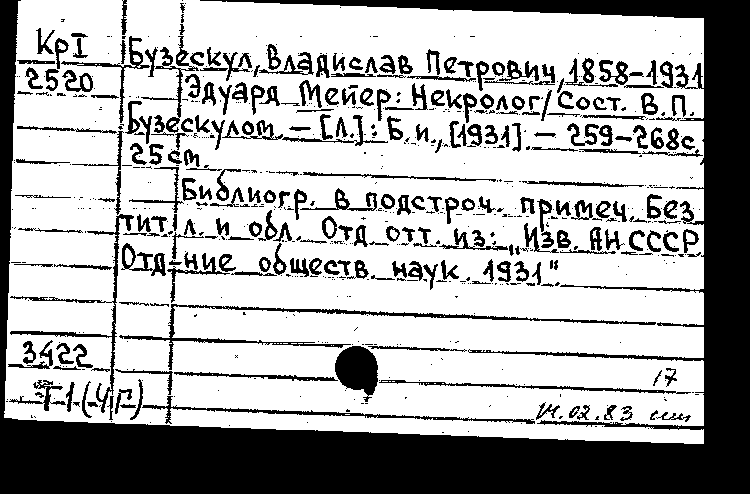 КрI
2520
Бузескул, Владислав Петрович, 1858-1931
Эдуард Мейер: Некролог/Сост. В.П.
Бузескулом. — [Л.]: Б.и., [1931]. — 259-268с.;
25см.
Библиогр. в подстроч. примеч. Без
тит. л. и обл. Отд. отт. из: „Изв. АН СССР.
Отд-ние обществ. наук. 1931".
3422
Т1(4Г)
17
14.02.83